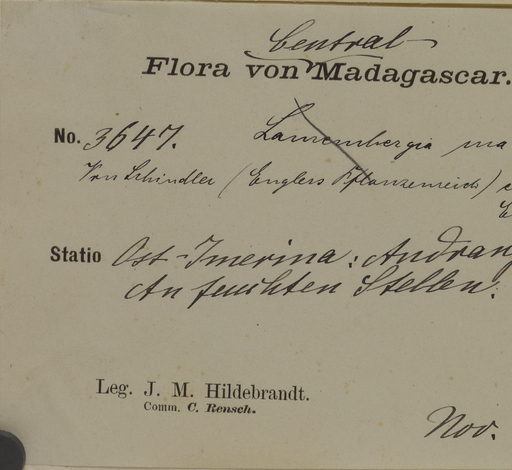 Central-
Flora von Madagascar.
No. 3647. Laurembergia ma
Von Schindler (Englers Pflanzenreich)
E
Statio Ost-Imerina: Andrang
An feuchten Stellen.
Leg. J. M. Hildebrandt.
Comm. C. Rensch.
Nov.